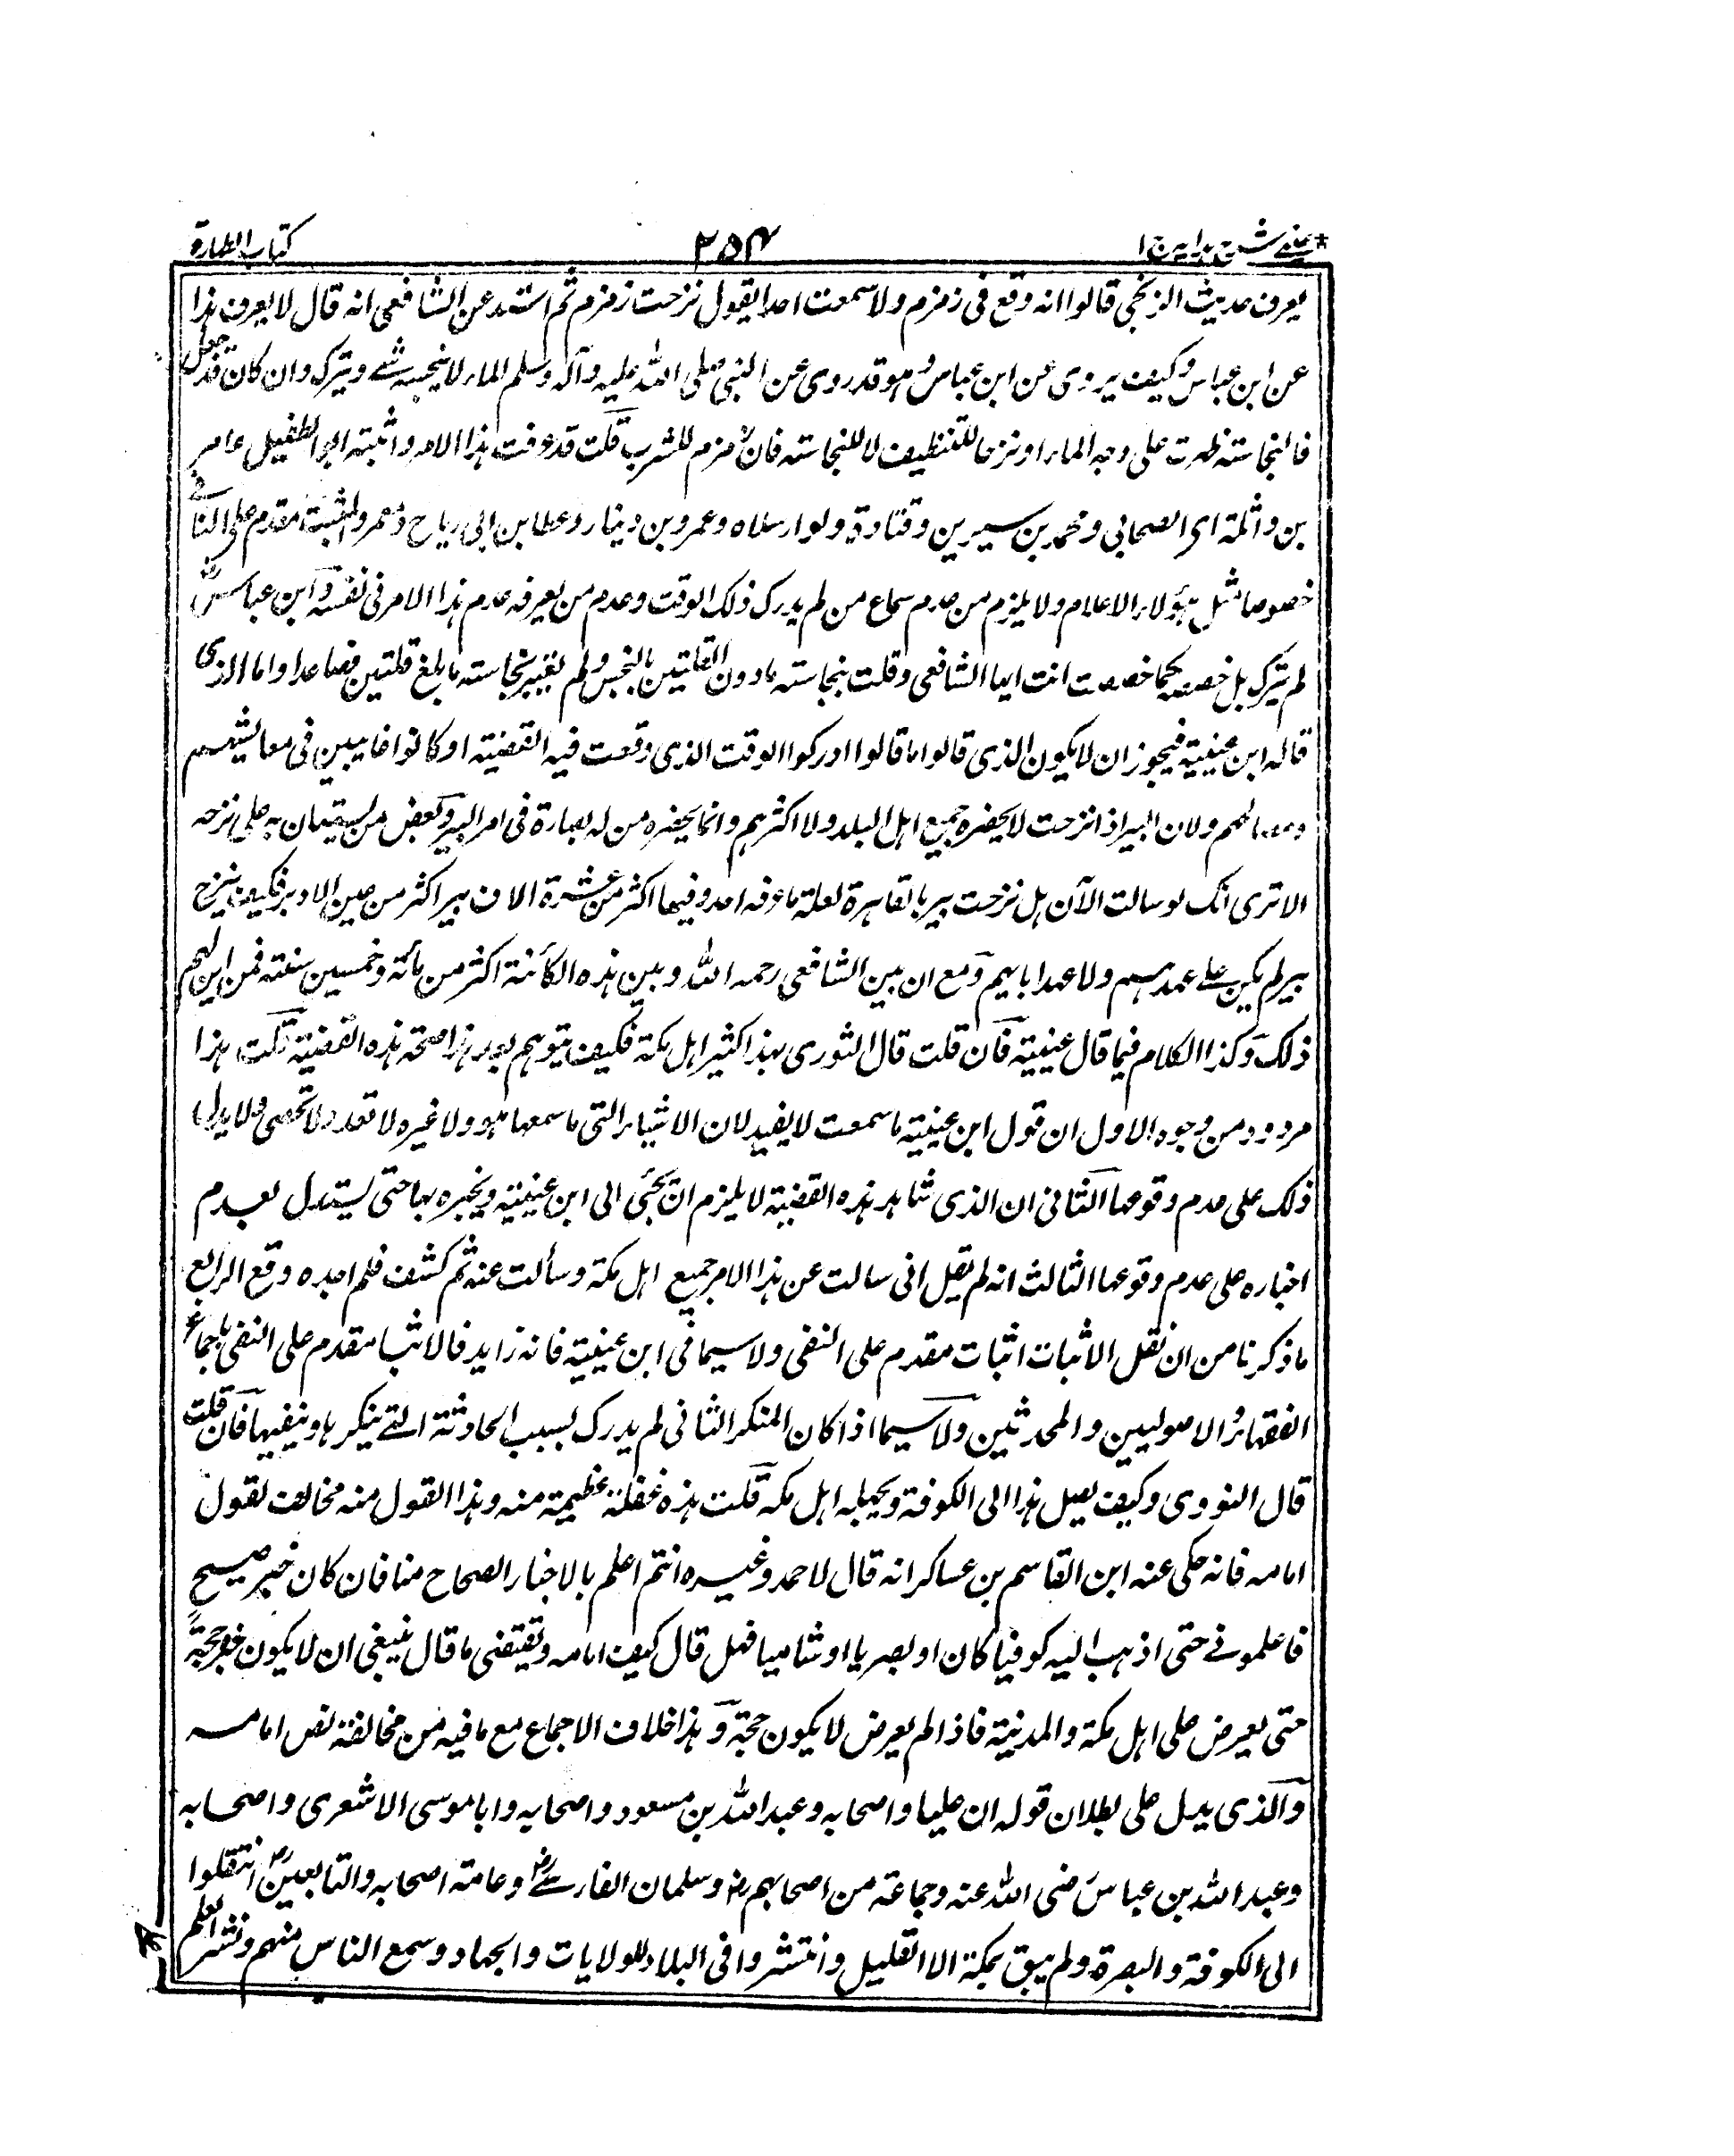 عيني شرح هداية ج ١ ٢٥٤ كتاب الطهارة
يعرف حديث الزنجي قالوا انه وقع فى زمزم ولا سمعت احدا يقول نزحت زمزم ثم اسند عن الشافعى انه قال لا يعرف هذا
عن ابن عباس وكيف يروى عن ابن عباس وهو قد روى عن النبى صلى الله عليه وآله وسلم الماء لا ينجسه شے ويترك وان كان قد فعل
فالنجاسته ظهرت على وجه الماء او نزحا للتنظيف لا للنجاسته فان زمزم للشرب قلت قد عرفت هذا الامر واثبته ابو الطفيل عامر
بن واثلة اى الصحابي ومحمد بن سيرين وقتادة ولو ارسلاه وعمرو بن دينار وعطا بن ابى رباح ومعمر والمثبت مقدم على النافے
خصوصا مثل هؤلاء الاعلام ولا يلزم من عدم سماع من لم يدرك ذلك الوقت وعدم من يعرفه عدم هذا الامر فى نفسه وابن عباس رض
لم يترك بل خصصه كما خصصت انت ايها الشافعى وقلت بنجاسته مادون القلتين بالنجس ولم يتغير بنجاسته ما بلغ قلتين فصاعدا واما الذى
قاله ابن عيينة فيجوز ان لا يكون الذى قالوا ما قالوا ادركوا الوقت الذى وقعت فيه القضية او كانوا غايبين فى معايشهم
ومصالحهم ولان البير اذا نزحت لا يحضره جميع اهل البلد ولا اكثرهم وانما يحضره من له بصارة فى امر البير وبعض من يستعان به على نزحه
الا ترى انك لو سالت الآن هل نزحت بير بالقاهرة لعلة ما عرفه احد وفيها اكثر من عشرة الاف بير اكثر من عين الادبر فكيف ينزح
بير لم يكن على عهدهم ولا عهد ابايهم ومع ان بين الشافعى رحمه الله وبين هذه الكائنة اكثر من مائة وخمسين سنة فمن اين لهم
ذلك وكذا الكلام فيما قال عيينة فان قلت قال الثورى بهذا كثير اهل مكة فكيف يتوهم بعد هذا صحة هذه القضية قلت هذا
مردود من وجوه الاول ان قول ابن عيينة ما سمعت لا يفيد لان الاشياء التى ما سمعها هو ولا غيره لا تعدد ولا تحصى ولا يدل
ذلك على عدم وقوعها الثانى ان الذى شاهد هذه القضية لا يلزم ان يجئى الى ابن عيينة ويخبره بها حتى يستدل بعدم
اخباره على عدم وقوعها الثالث انه لم يقل انى سالت عن هذا الامر جميع اهل مكة وسألت عنه ثم كشف فلم اجده وقع الرابع
ماذكرنا من ان نقل الاثبات اثبات مقدم على النفى ولا سيما فى ابن عيينة فانه زايد فالاثبات مقدم على النفى باجماع
الفقهاء والاصوليين والمحدثين ولا سيما اذا كان المنكر الثانى لم يدرك لسبب الحادثة التے ينكرها وينفيها فان قلت
قال النووى وكيف يصل هذا الى الكوفة ويجهله اهل مكه قلت هذه غفلة عظيمة منه وهذا القول منه مخالف لقول
امامه فانه حكى عنه ابن القاسم بن عساكر انه قال لاحمد وغيره انتم اعلم بالاخبار الصحاح منا فان كان خبر صحيح
فاعلمونے حتى اذهب اليه كوفيا كان او بصريا او شاميا فهل قال كيف امامه ويقتضى ما قال ينبغى ان لا يكون خبر حجة
حتى يعرض على اهل مكة والمدينة فاذا لم يعرض لا يكون حجة وهذا خلاف الاجماع مع ما فيه من مخالفة نص امامه
والذى يدل على بطلان قوله ان عليا واصحابه وعبد الله بن مسعود واصحابه وابا موسى الاشعرى واصحابه
وعبد الله بن عباس رضى الله عنه وجماعة من اصحابهم رض وسلمان الفارسے رض وعامة اصحابه والتابعين رح انتقلوا
الى الكوفة والبصرة ولم يبق بمكة الا القليل وانتشروا فى البلاد للولايات والجهاد وسمع الناس منهم ونشر العلم